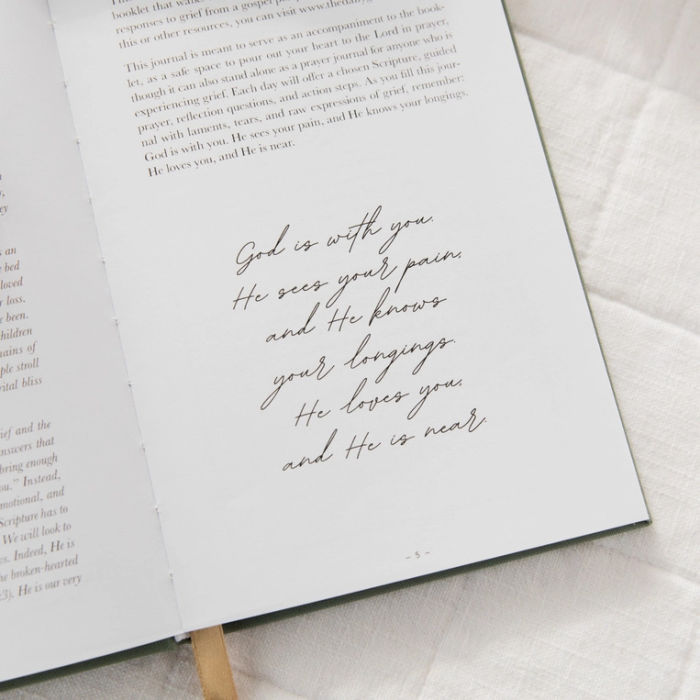 y,
ey
s an
e bed
loved
r loss,
e been.
children
mains of
ple stroll
rital bliss
ief and the
answers that
bring enough
ou.” Instead,
motional, and
Scripture has to
We will look to
s. Indeed, He is
he broken-hearted
:3). He is our very
booklet that walks
responses to grief from a gospel
this or other resources, you can visit
This journal is meant to serve as an accompaniment to the book-
let, as a safe space to pour out your heart to the Lord in prayer,
though it can also stand alone as a prayer journal for anyone who is
experiencing grief. Each day will offer a chosen Scripture, guided
prayer, reflection questions, and action steps. As you fill this jour-
nal with laments, tears, and raw expressions of grief, remember:
God is with you. He sees your pain, and He knows your longings.
He loves you, and He is near.
God is with you.
He sees your pain,
and He knows
your longings.
He loves you,
and He is near.
– 5 –